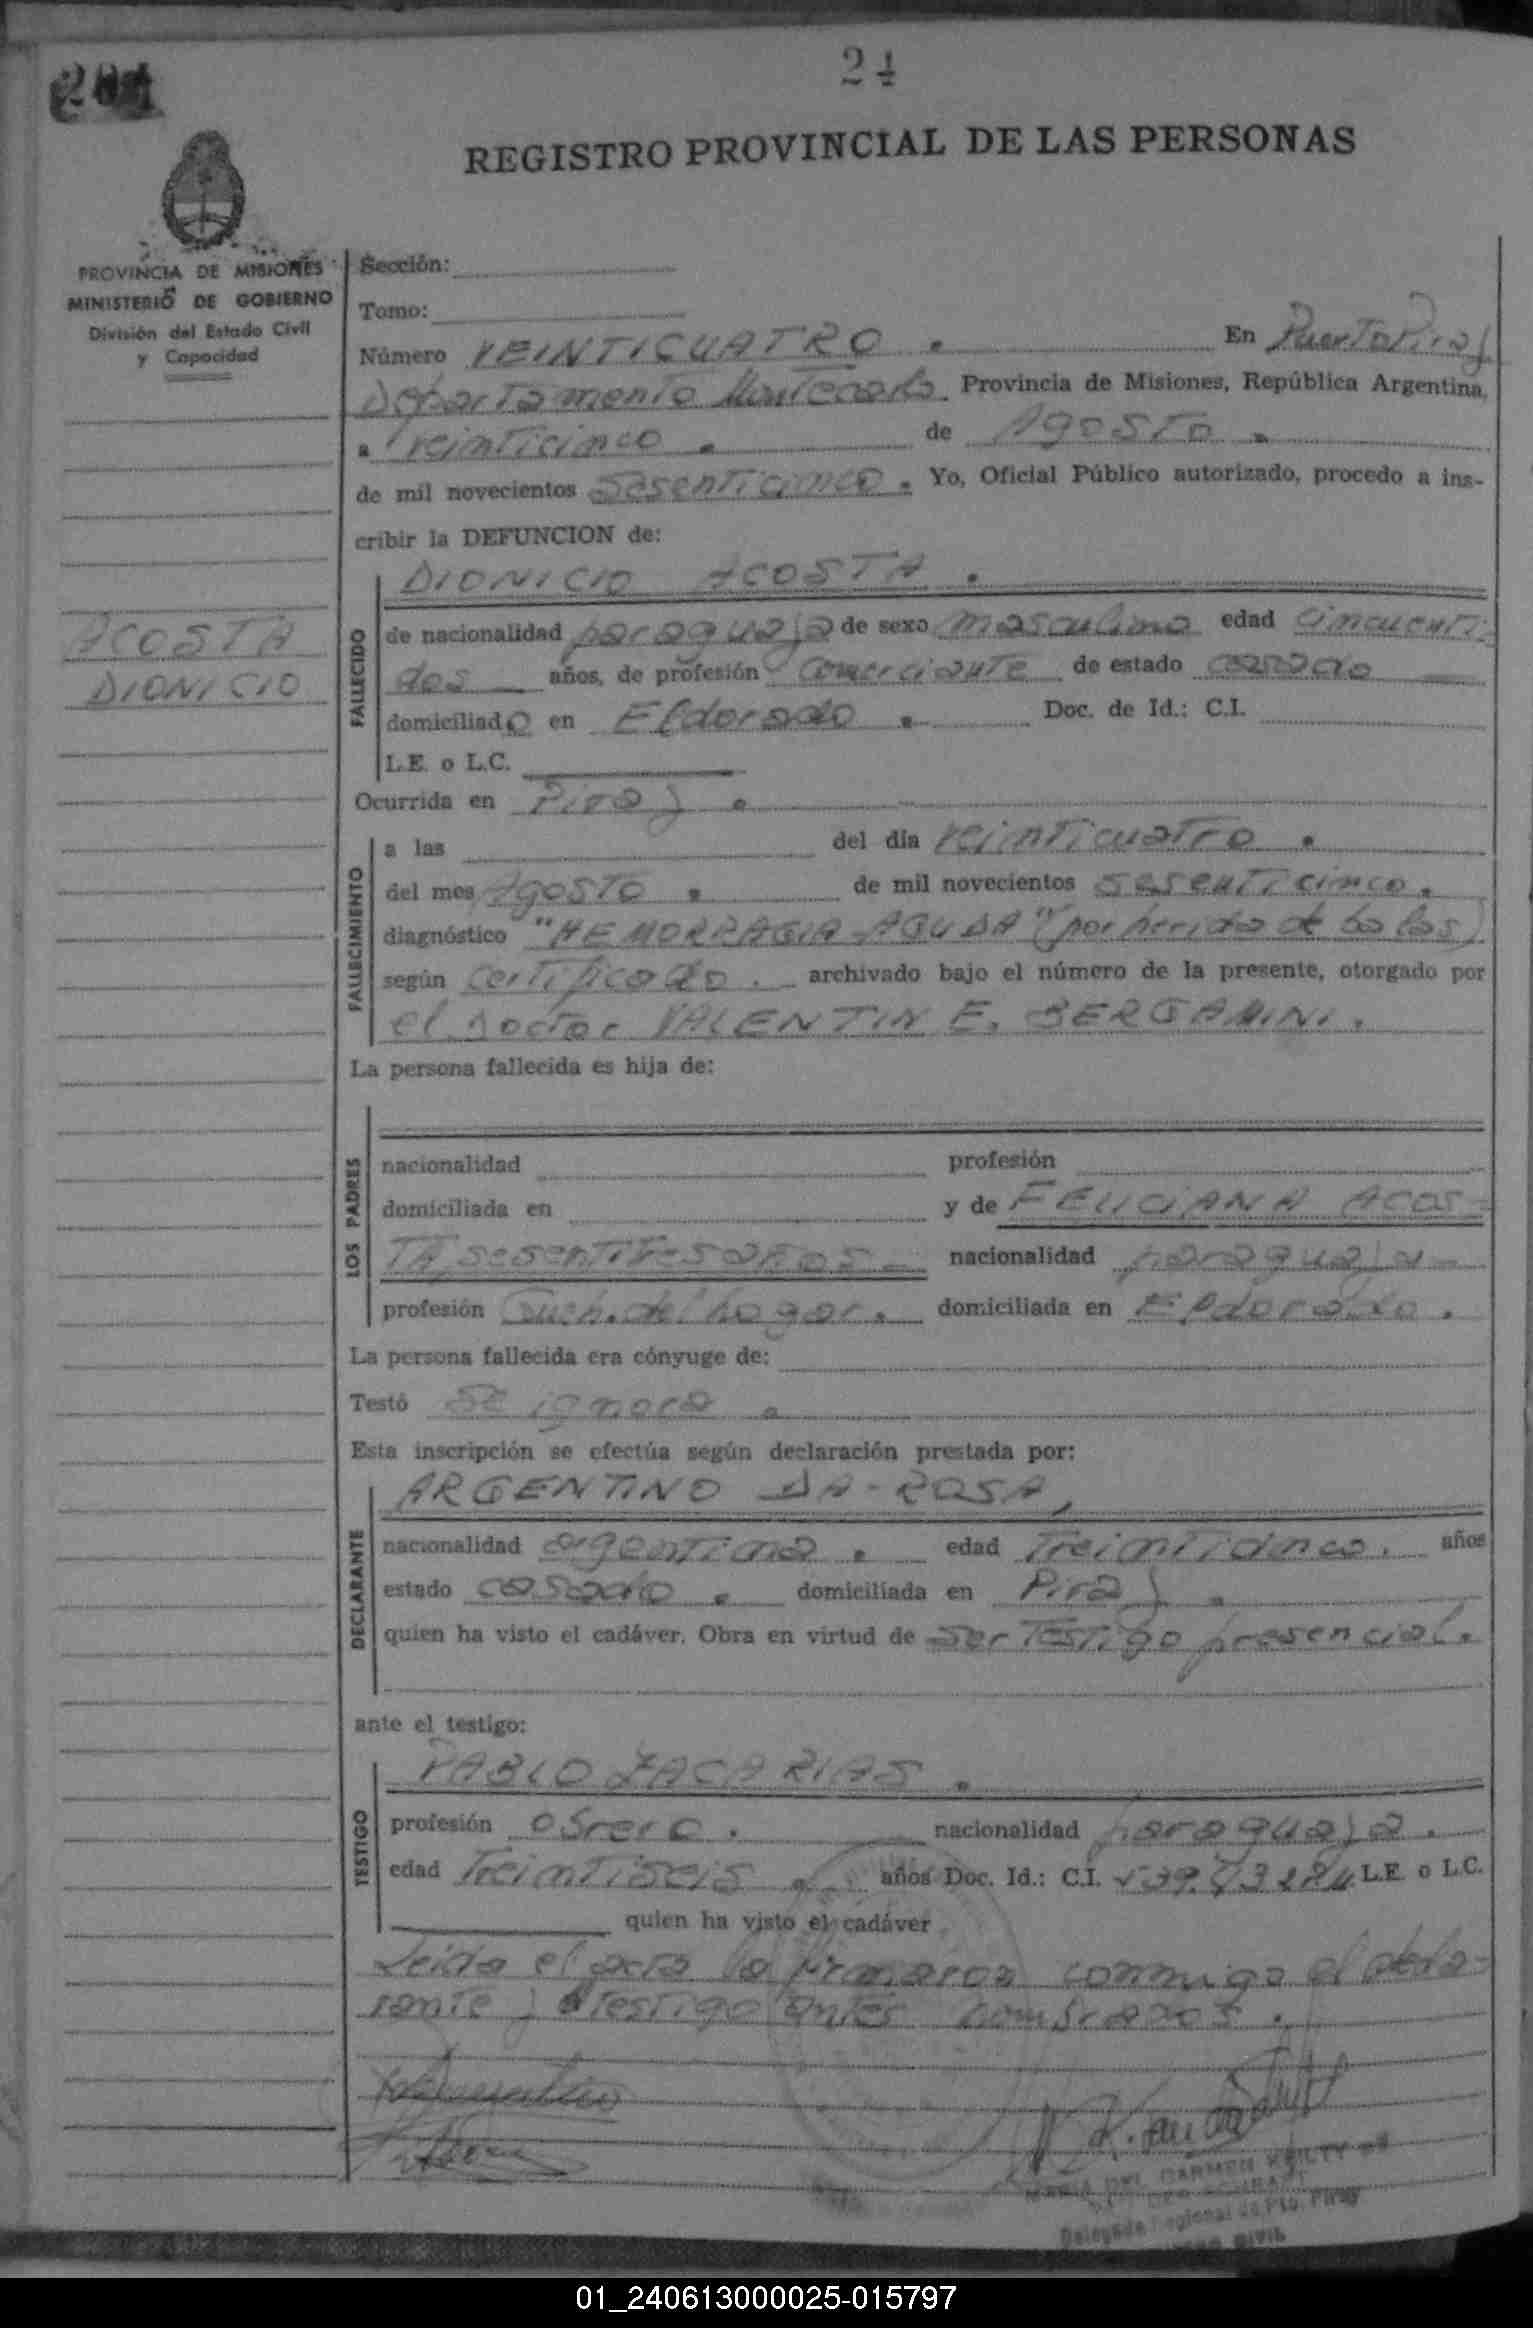 24
REGISTRO PROVINCIAL DE LAS PERSONAS
PROVINCIA DE MISIONES
MINISTERIO DE GOBIERNO
División del Estado Civil
y Capacidad
ACOSTA
DIONICIO
Sección:
Tomo:
Número VEINTICUATRO . En Puerto Piray
Departamento Montecarlo Provincia de Misiones, República Argentina,
a veinticinco . de Agosto .
de mil novecientos sesenticinco . Yo, Oficial Público autorizado, procedo a ins-
cribir la DEFUNCION de:
DIONICIO ACOSTA .
FALLECIDO
de nacionalidad paraguaya de sexo masculino edad cincuenti-
dos años, de profesión comerciante de estado casado
domiciliado en Eldorado . Doc. de Id.: C.I.
L.E. o L.C.
Ocurrida en Piray .
FALLECIMIENTO
a las del día veinticuatro .
del mes Agosto . de mil novecientos sesenticinco .
diagnóstico "HEMORRAGIA AGUDA" (por herida de balas)
según certificado . archivado bajo el número de la presente, otorgado por
el Doctor VALENTIN E. BERGAMINI .
La persona fallecida es hija de:
LOS PADRES
nacionalidad profesión
domiciliada en y de FELICIANA ACOS-
TA, sesentitres años - nacionalidad paraguaya -
profesión del hogar . domiciliada en Eldorado .
La persona fallecida era cónyuge de:
Testó se ignora .
Esta inscripción se efectúa según declaración prestada por:
ARGENTINO DA-ROSA,
DECLARANTE
nacionalidad argentina . edad treinticinco . años
estado casado . domiciliada en Piray .
quien ha visto el cadáver. Obra en virtud de ser testigo presencial .
ante el testigo:
PABLO ZACARIAS .
TESTIGO
profesión obrero . nacionalidad paraguaya .
edad treintiseis . años Doc. Id.: C.I. L.E. o L.C.
quien ha visto el cadáver
Leida el acta la firmaron conmigo el decla-
rante y testigo antes nombrados .
MARIA DEL CARMEN
Delegada Regional de Pto. Piray
CIVIL
01_240613000025-015797